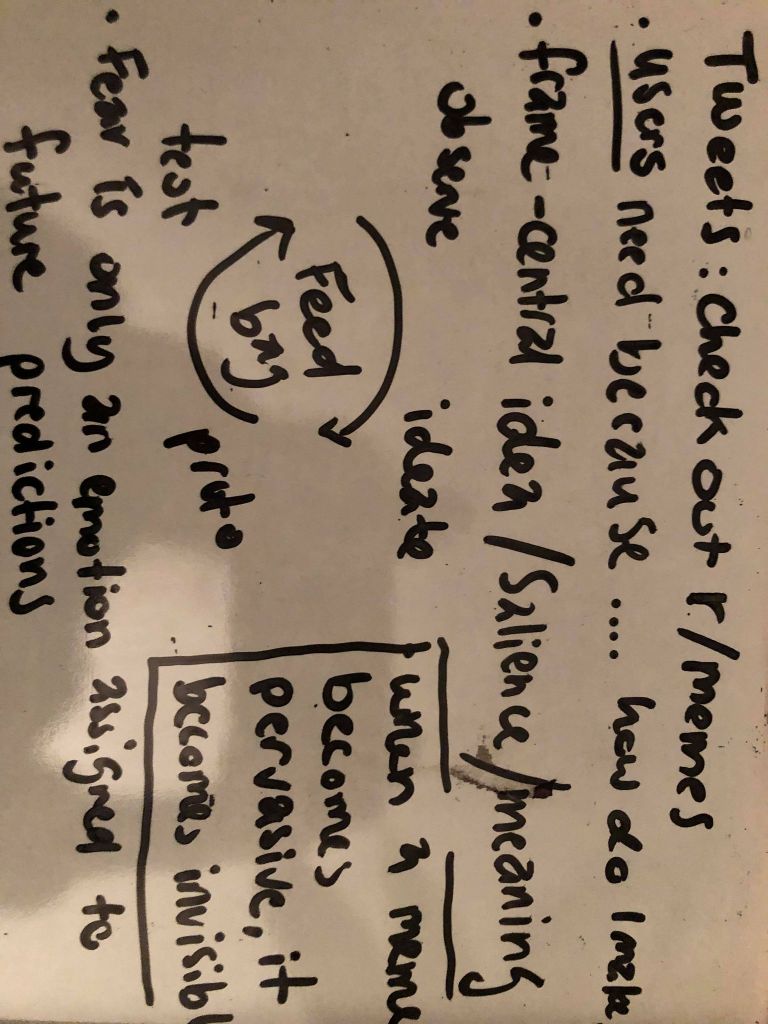 Tweets: check out r/memes
• users need because .... how do I make
• frame-central idea/Salience/meaning
observe
ideate
Feed
bag
test
proto
when a meme
becomes
pervasive, it
becomes invisibl
• Fear is only an emotion assigned to
future predictions